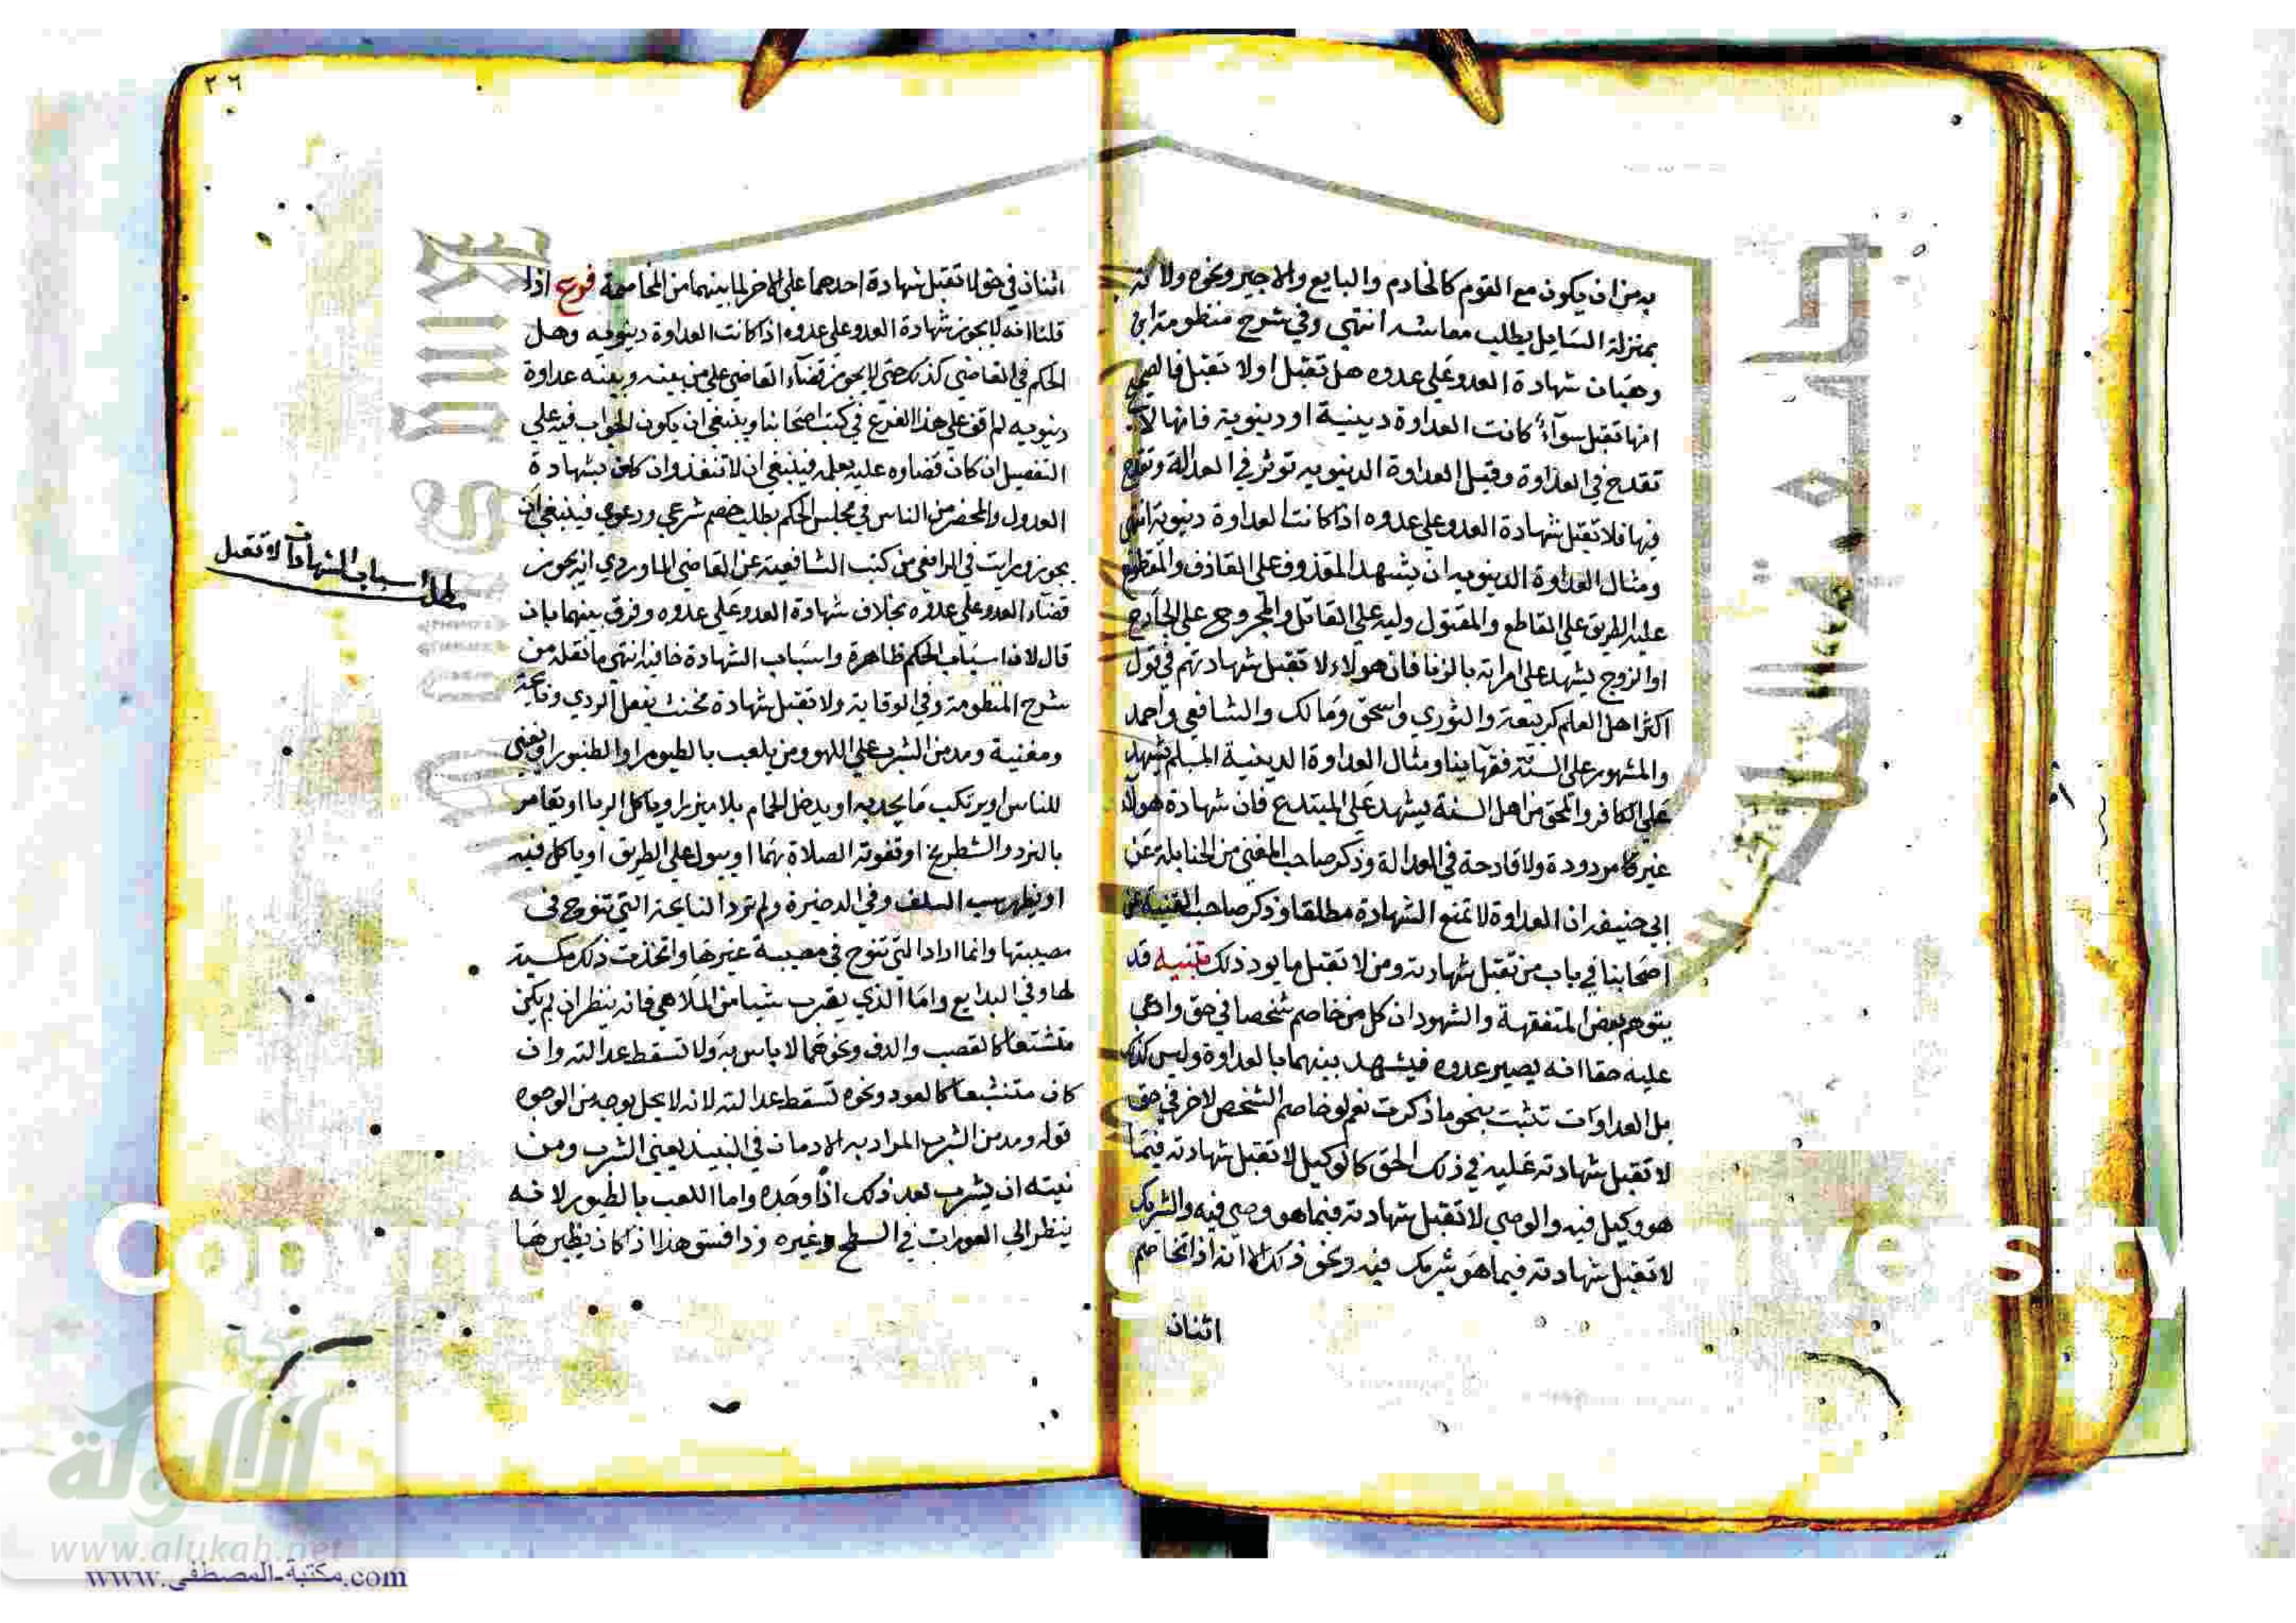 به من ان يكون مع القوم كالخادم والبايع والاجير ونحوه ولانه
بمنزلة السايل يطلب معاشه انتهى وفي شرح منظومة ابن
وهبان شهادة العدو على عدوه هل تقبل اولا تقبل فالصحيح
انها تقبل سوآء كانت العداوة دينية او دينوية فانها لا
تقدح في العداوة وقيل العداوة الدينويه توثر في العدالة وتقدح
فيها فلا تقبل شهادة العدو على عدوه اذا كانت العداوة دينوية انتهى
ومثال العداوة الدينويه ان يشهد المقذوف على القاذف والمقطوع
عليه الطريق على القاطع والمقتول وليه على القاتل والمجروح على الجارح
او الزوج يشهد على امراته بالزنا فان هولاء لا تقبل شهادتهم في قول
اكثر اهل العلم كربيعة والثوري واسحق ومالك والشافعي واحمد
والمشهور على السنة فقهاينا ومثال العداوة الدينية المسلم يشهد
على الكافر والمحق من اهل السنة يشهد على المبتدع فان شهادة هولاء
غير مردودة ولا قادحة في العدالة وذكر صاحب المغني من الحنابلة عن
ابي حنيفه ان العداوة لا تمنع الشهادة مطلقا وذكر صاحب القنية من
اصحابنا في باب من تقبل شهادته ومن لا تقبل ما يود ذلك تنبيه قد
يتوهم بعض المتفقهة والشهود ان كل من خاصم شخصا في حق وادعى
عليه حقا انه يصير عدوه فيشهد بينهما بالعداوة وليس كذلك
بل العداوات تثبت بنحو ما ذكرت نعم لو خاصم الشخص لاخر في حق
لا تقبل شهادته عليه في ذلك الحق كالوكيل لا تقبل شهادته فيما
هو وكيل فيه والوصي لا تقبل شهادته فيما هو وصي فيه والشريك
لا تقبل شهادته فيما هو شريك فيه ونحو ذلك لا انه اذا تخاصم
اثنان
٢٦
اثنان في حق لا تقبل شهادة احدهما على الاخر لما بينهما من المخاصمة فرع اذا
قلنا انه لا يجوز شهادة العدو على عدوه اذا كانت العداوة دينويه وهل
الحكم في القاضي كذلك حتى لا يجوز قضاء القاضي على من بينه وبينه عداوة
دينويه لم اقف على هذا الفرع في كتب اصحابنا وينبغي ان يكون الجواب فيه على
التفصيل ان كان قضاوه عليه بعلمه فينبغي ان لا تنفذ وان كان بشهادة
العدول والمحضر من الناس في مجلس الحكم بطلب خصم شرعي ودعوي فينبغي ان
يجوز ورايت في الرافعي من كتب الشافعية عن القاضي الماوردي انه يجوز
قضاء العدو على عدوه بخلاف شهادة العدو على عدوه وفرق بينهما بان
قال لان اسباب الحكم ظاهرة واسباب الشهادة خافيه انتهى ما نقله من
شرح المنظومة وفي الوقاية ولا تقبل شهادة مخنث يفعل الردي ونايحة
ومغنية ومدمن الشرب على اللهو ومن يلعب بالطيور او الطنبور او يغني
للناس او يرتكب ما يحد به او يدخل الحمام بلا ميزر او ياكل الربا او يقامر
بالنرد والشطرنج او تفوته الصلاة بهما او يبول على الطريق او ياكل فيه
او يظهر سب السلف وفي الدخيرة ولم ترد النايحة التي تنوح في
مصيبتها وانما اراد التي تنوح في مصيبة غيرها واتخذت ذلك مكسبة
لها وفي البدايع واما الذي يضرب شيا من الملاهي فانه ينظر ان لم يكن
متشنعا كالقصب والدف ونحوهما لا باس به ولا تسقط عدالته وان
كان متنشبعا كالعود ونحوه تسقط عدالته لانه لا يحل بوجه من الوجوه
قوله ومدمن الشرب المراد به الادمان في النبيذ يعني الشرب ومن
نيته ان يشرب بعد ذلك اذا وجده واما اللعب بالطيور لانه
ينظر الى العورات في السطح وغيره وذا فسق هذا اذا كان يطيرها
اسباب الشهادات لا تقبل
Copyri
g
iversity
الألوكة
www.alukah.net
www.مكتبة-المصطفى.com